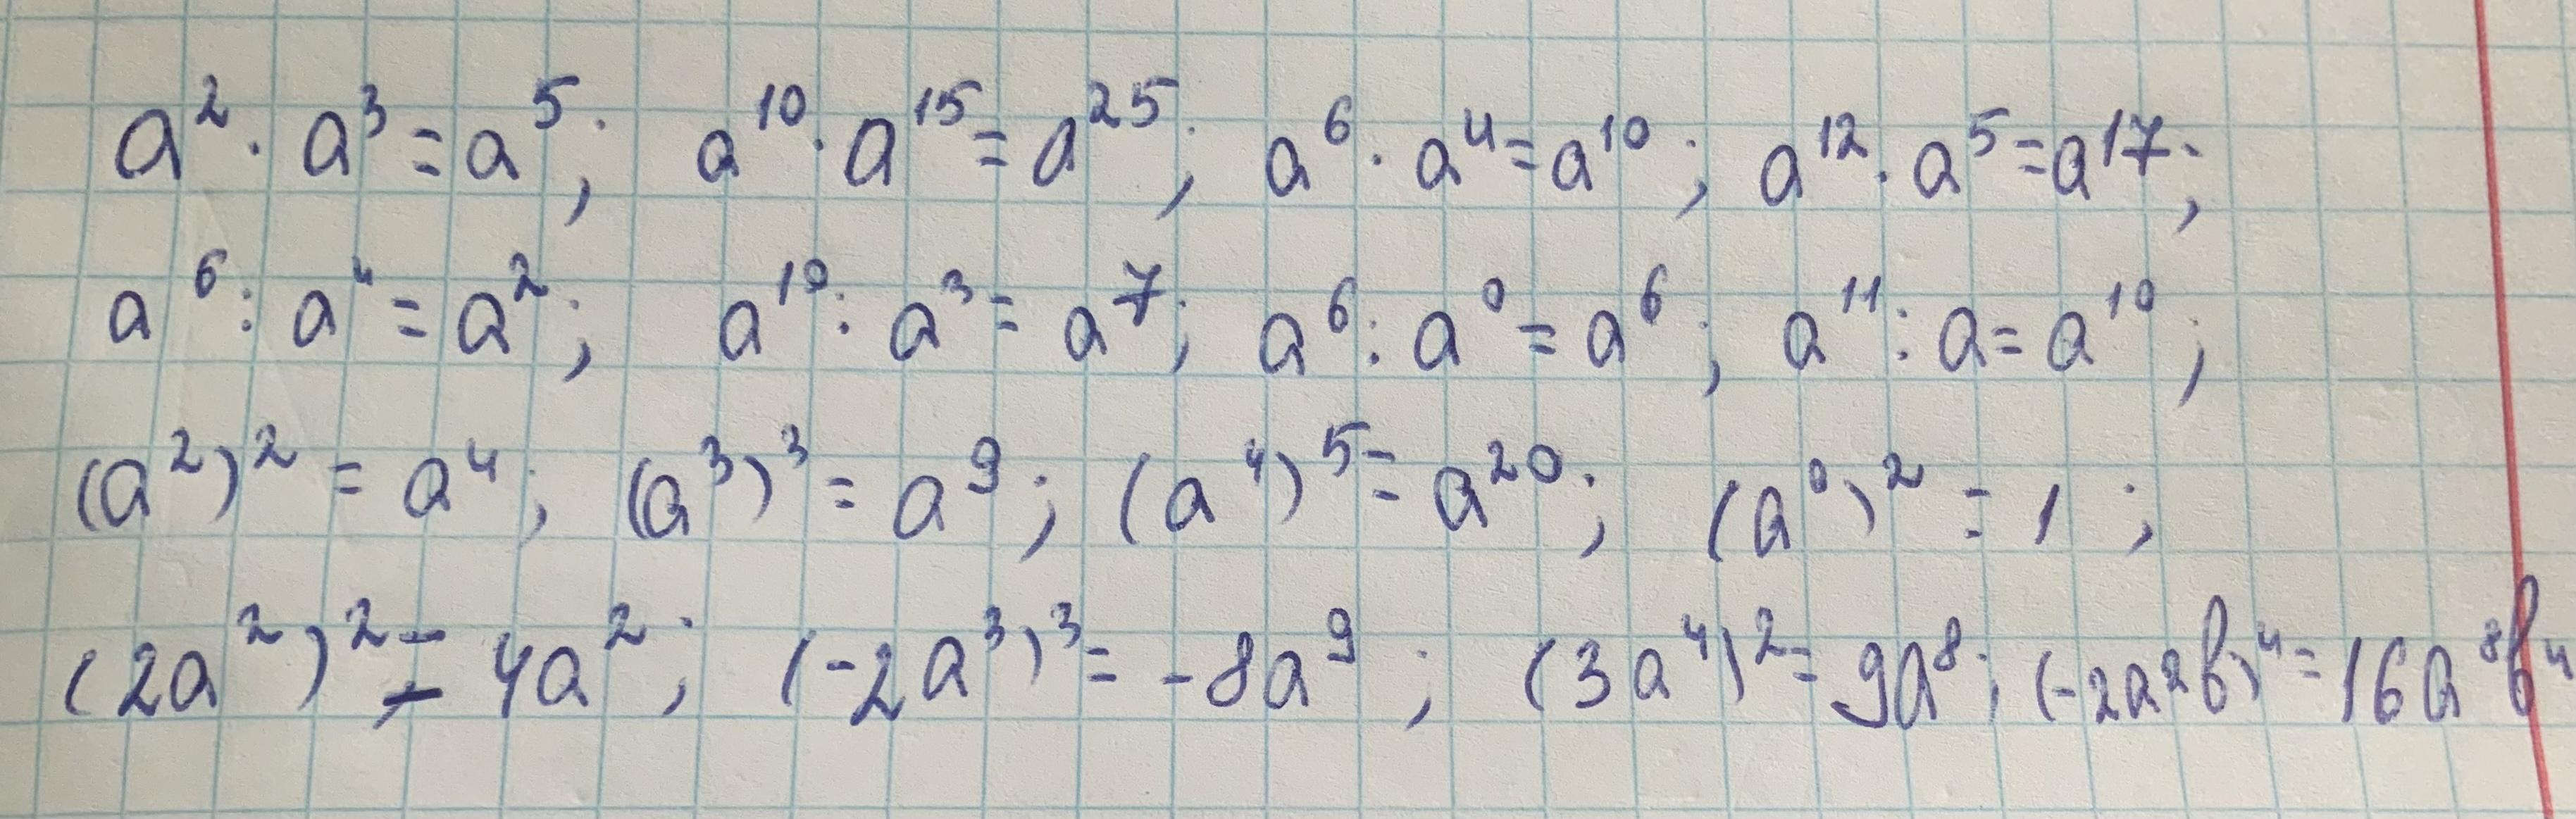 a² · a³ = a⁵; a¹⁰ · a¹⁵ = a²⁵; a⁶ · a⁴ = a¹⁰; a¹² · a⁵ = a¹⁷;
a⁶ : a⁴ = a²; a¹⁰ : a³ = a⁷; a⁶ : a⁰ = a⁶; a¹¹ : a = a¹⁰;
(a²)² = a⁴; (a³)³ = a⁹; (a⁴)⁵ = a²⁰; (a⁰)² = 1;
(2a²)² = 4a²; (-2a³)³ = -8a⁹; (3a⁴)² = 9a⁸; (-2a²b)⁴ = 16a⁸b⁴